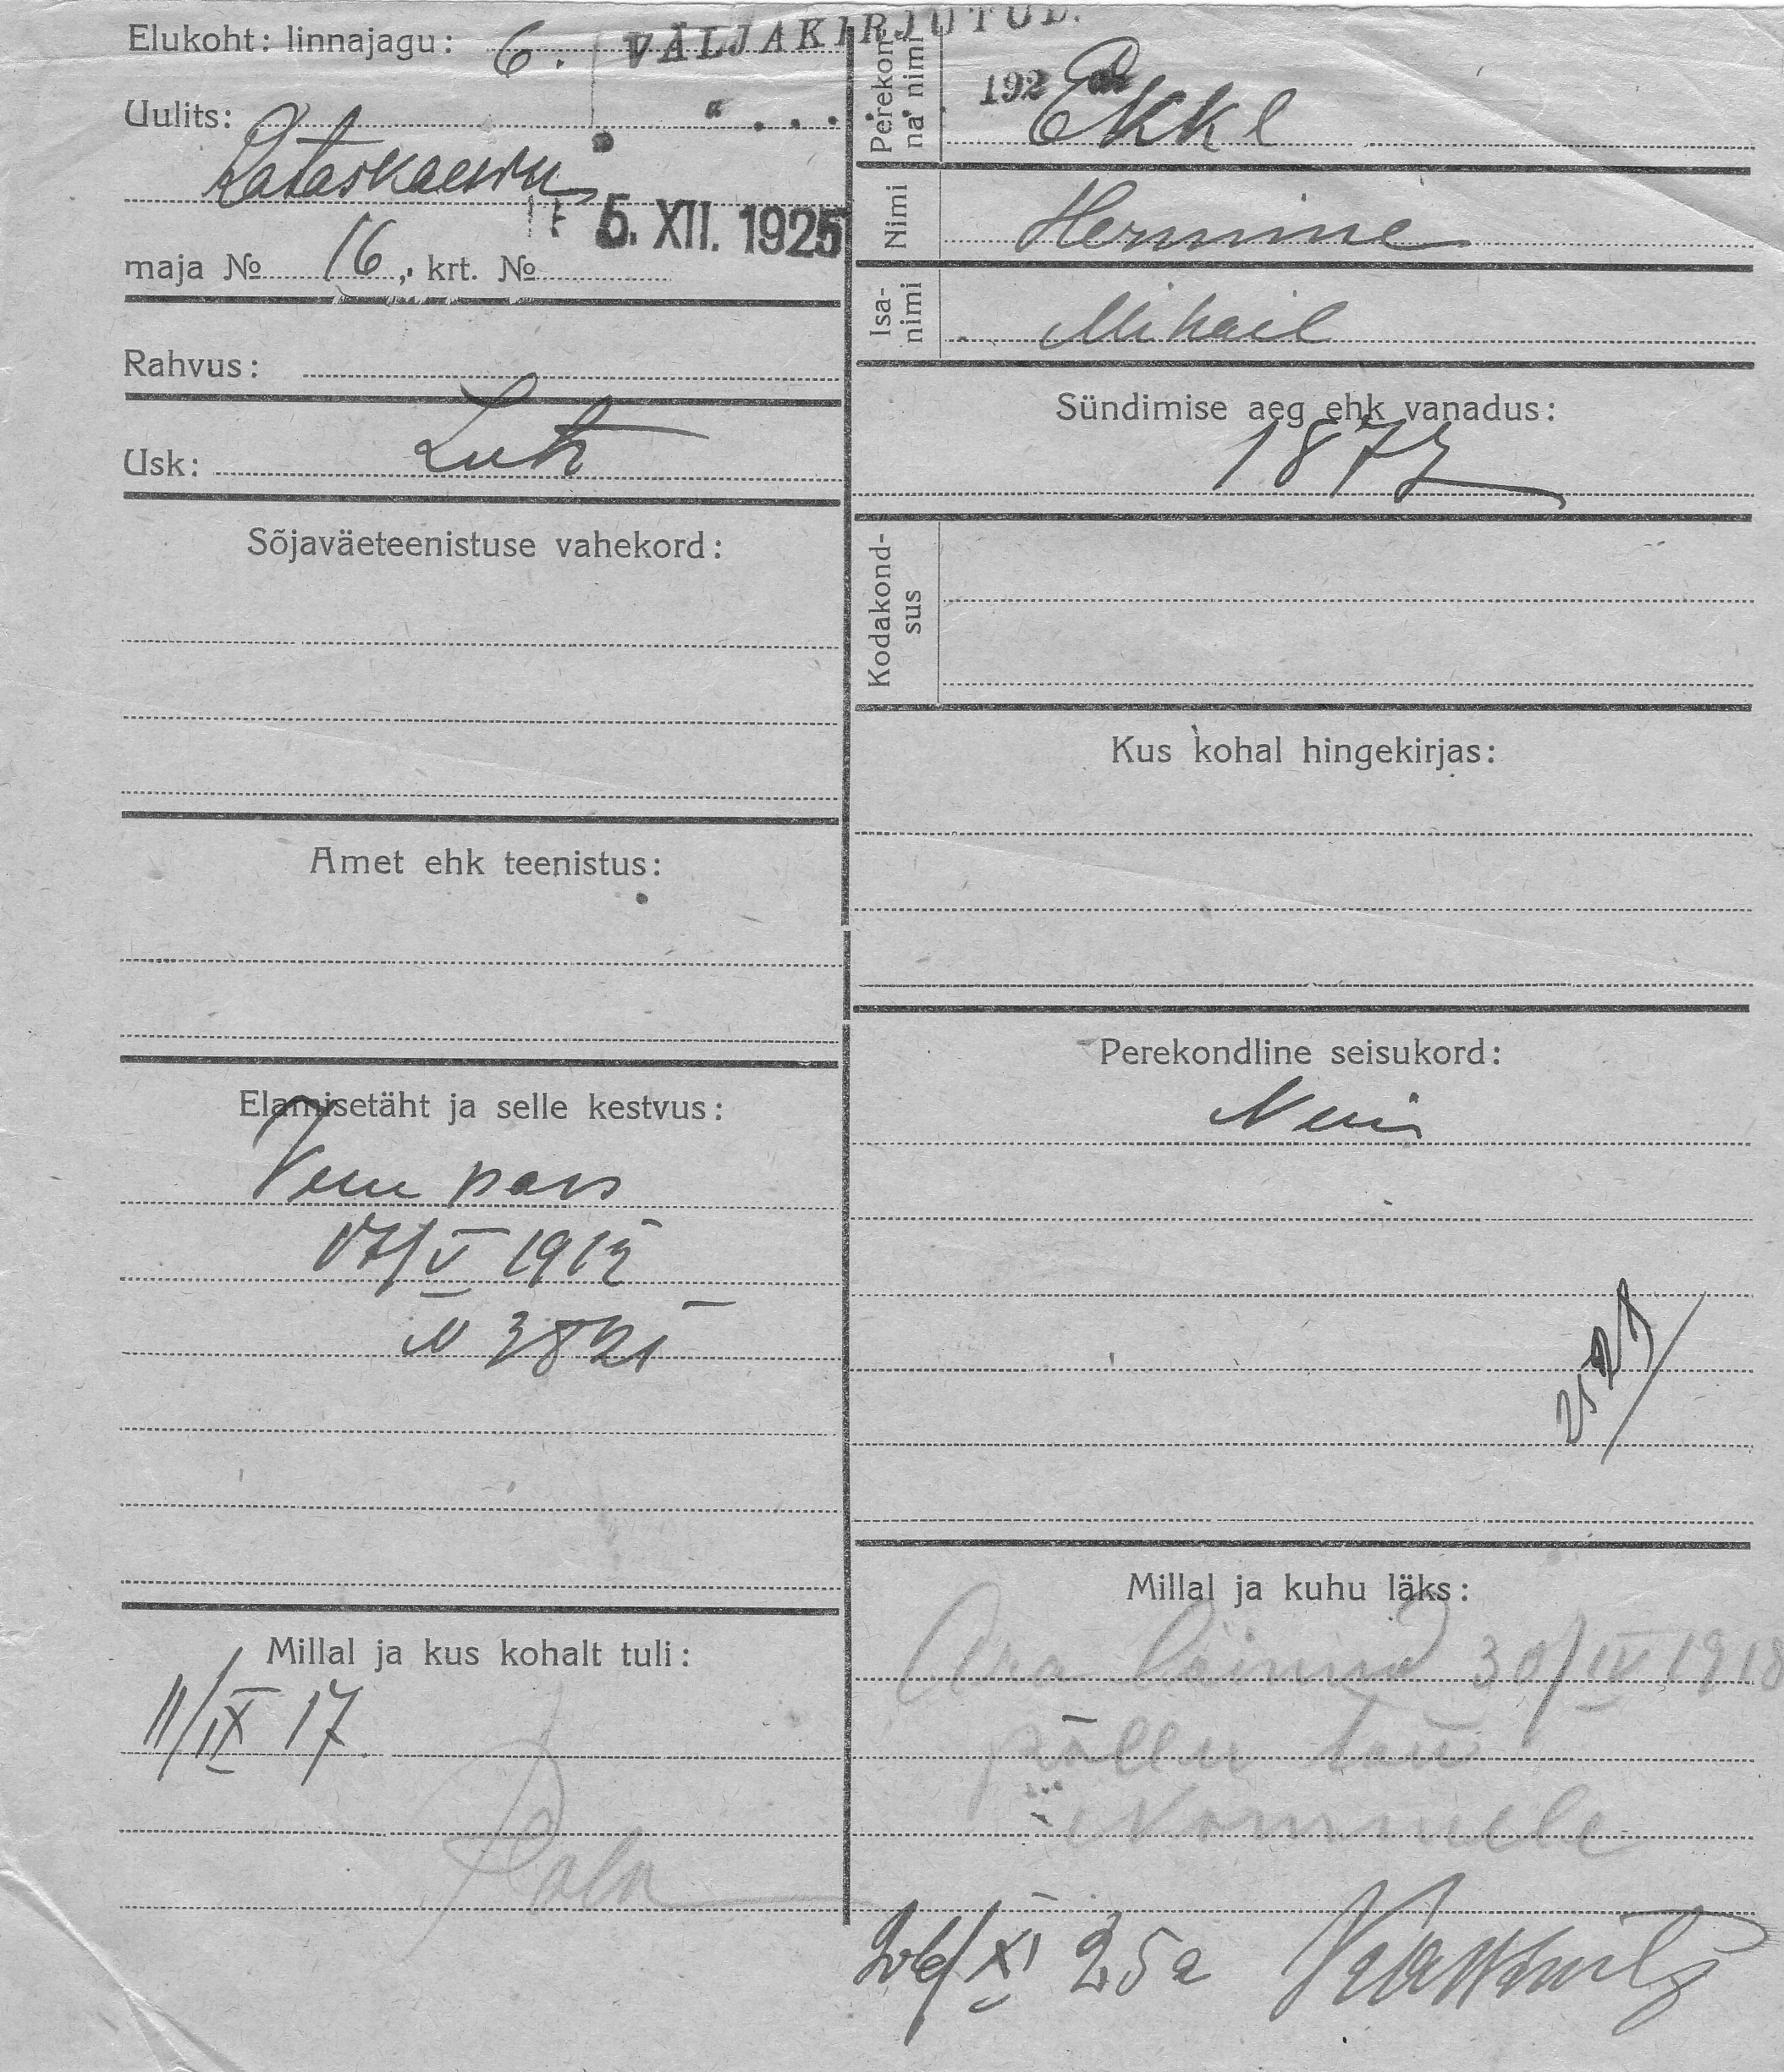 Elukoht: linnajagu: 6.
VÄLJAKIRJUTUD.
Uulits:
Rataskaevu
5. XII. 1925
maja № 16, krt. №
Rahvus:
Usk: Luth
Sõjaväeteenistuse vahekord:
Amet ehk teenistus:
Elamisetäht ja selle kestvus:
Vene pass
17/V 1915
N 3821
Millal ja kus kohalt tuli:
11/IX 17.
Perekon-
na nimi
192
Ekkl
Nimi
Hermine
Isa-
nimi
Mihail
Sündimise aeg ehk vanadus:
1872
Kodakond-
sus
Kus kohal hingekirjas:
Perekondline seisukord:
Neiu
Millal ja kuhu läks:
Ära läinud 30/IV 1918
põllu töö
Nommele
XI 25a